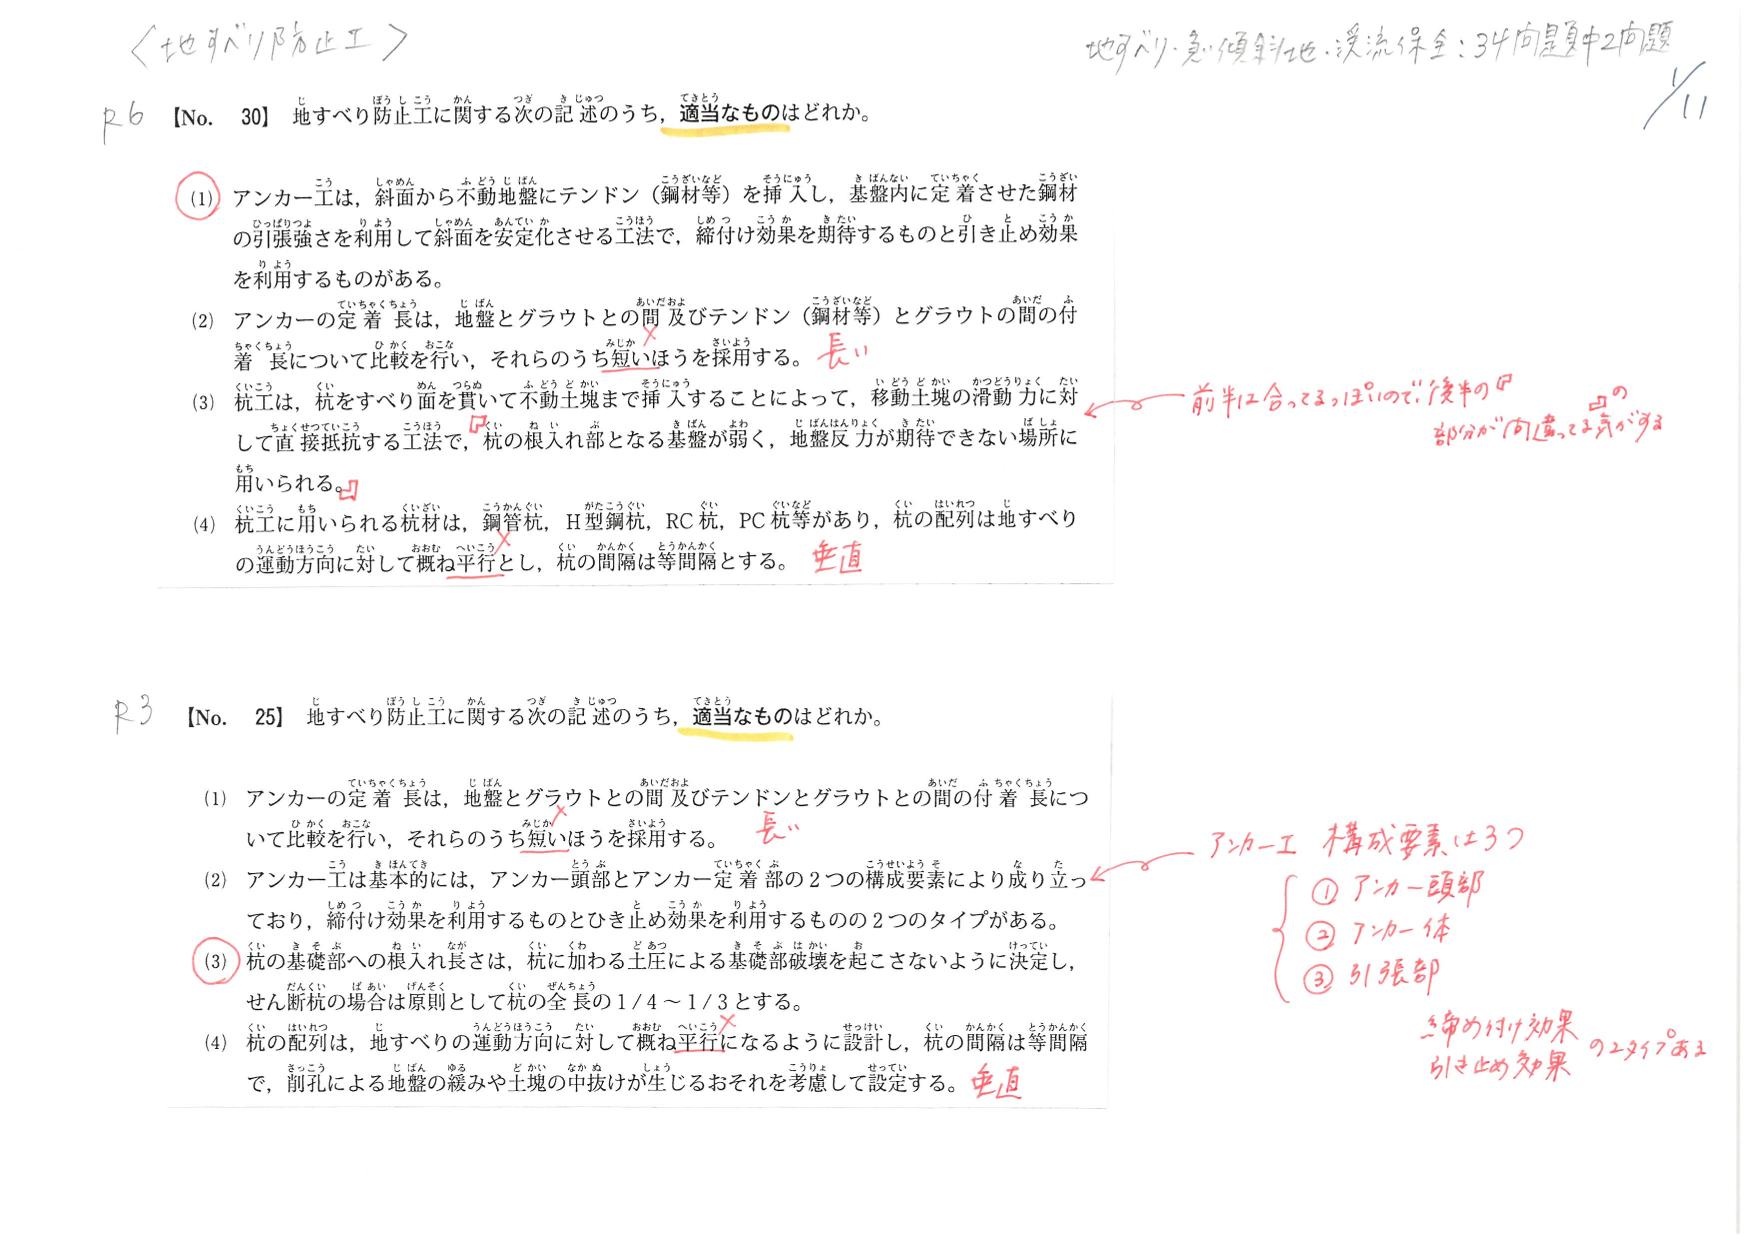 〈地すべり防止工〉
地すべり・急傾斜地・渓流保全：34問題中2問題
1/11
R6 【No. 30】 地すべり防止工に関する次の記述のうち，適当なものはどれか。
(1) アンカー工は，斜面から不動地盤にテンドン（鋼材等）を挿入し，基盤内に定着させた鋼材
の引張強さを利用して斜面を安定化させる工法で，締付け効果を期待するものと引き止め効果
を利用するものがある。
(2) アンカーの定着長は，地盤とグラウトとの間及びテンドン（鋼材等）とグラウトの間の付
着長について比較を行い，それらのうち短いほうを採用する。 長い
(3) 杭工は，杭をすべり面を貫いて不動土塊まで挿入することによって，移動土塊の滑動力に対
して直接抵抗する工法で，『杭の根入れ部となる基盤が弱く，地盤反力が期待できない場所に
用いられる。』
前半は合ってるっぽいので、後半の『 』の
部分が間違ってる気がする
(4) 杭工に用いられる杭材は，鋼管杭，H型鋼杭，RC杭，PC杭等があり，杭の配列は地すべり
の運動方向に対して概ね平行とし，杭の間隔は等間隔とする。 垂直
R3 【No. 25】 地すべり防止工に関する次の記述のうち，適当なものはどれか。
(1) アンカーの定着長は，地盤とグラウトとの間及びテンドンとグラウトとの間の付着長につ
いて比較を行い，それらのうち短いほうを採用する。 長い
(2) アンカー工は基本的には，アンカー頭部とアンカー定着部の2つの構成要素により成り立っ
ており，締付け効果を利用するものとひき止め効果を利用するものの2つのタイプがある。
(3) 杭の基礎部への根入れ長さは，杭に加わる土圧による基礎部破壊を起こさないように決定し，
せん断杭の場合は原則として杭の全長の1/4～1/3とする。
(4) 杭の配列は，地すべりの運動方向に対して概ね平行になるように設計し，杭の間隔は等間隔
で，削孔による地盤の緩みや土塊の中抜けが生じるおそれを考慮して設定する。 垂直
アンカー工 構成要素は3つ
① アンカー頭部
② アンカー体
③ 引張部
締め付け効果
引き止め効果 の2タイプある